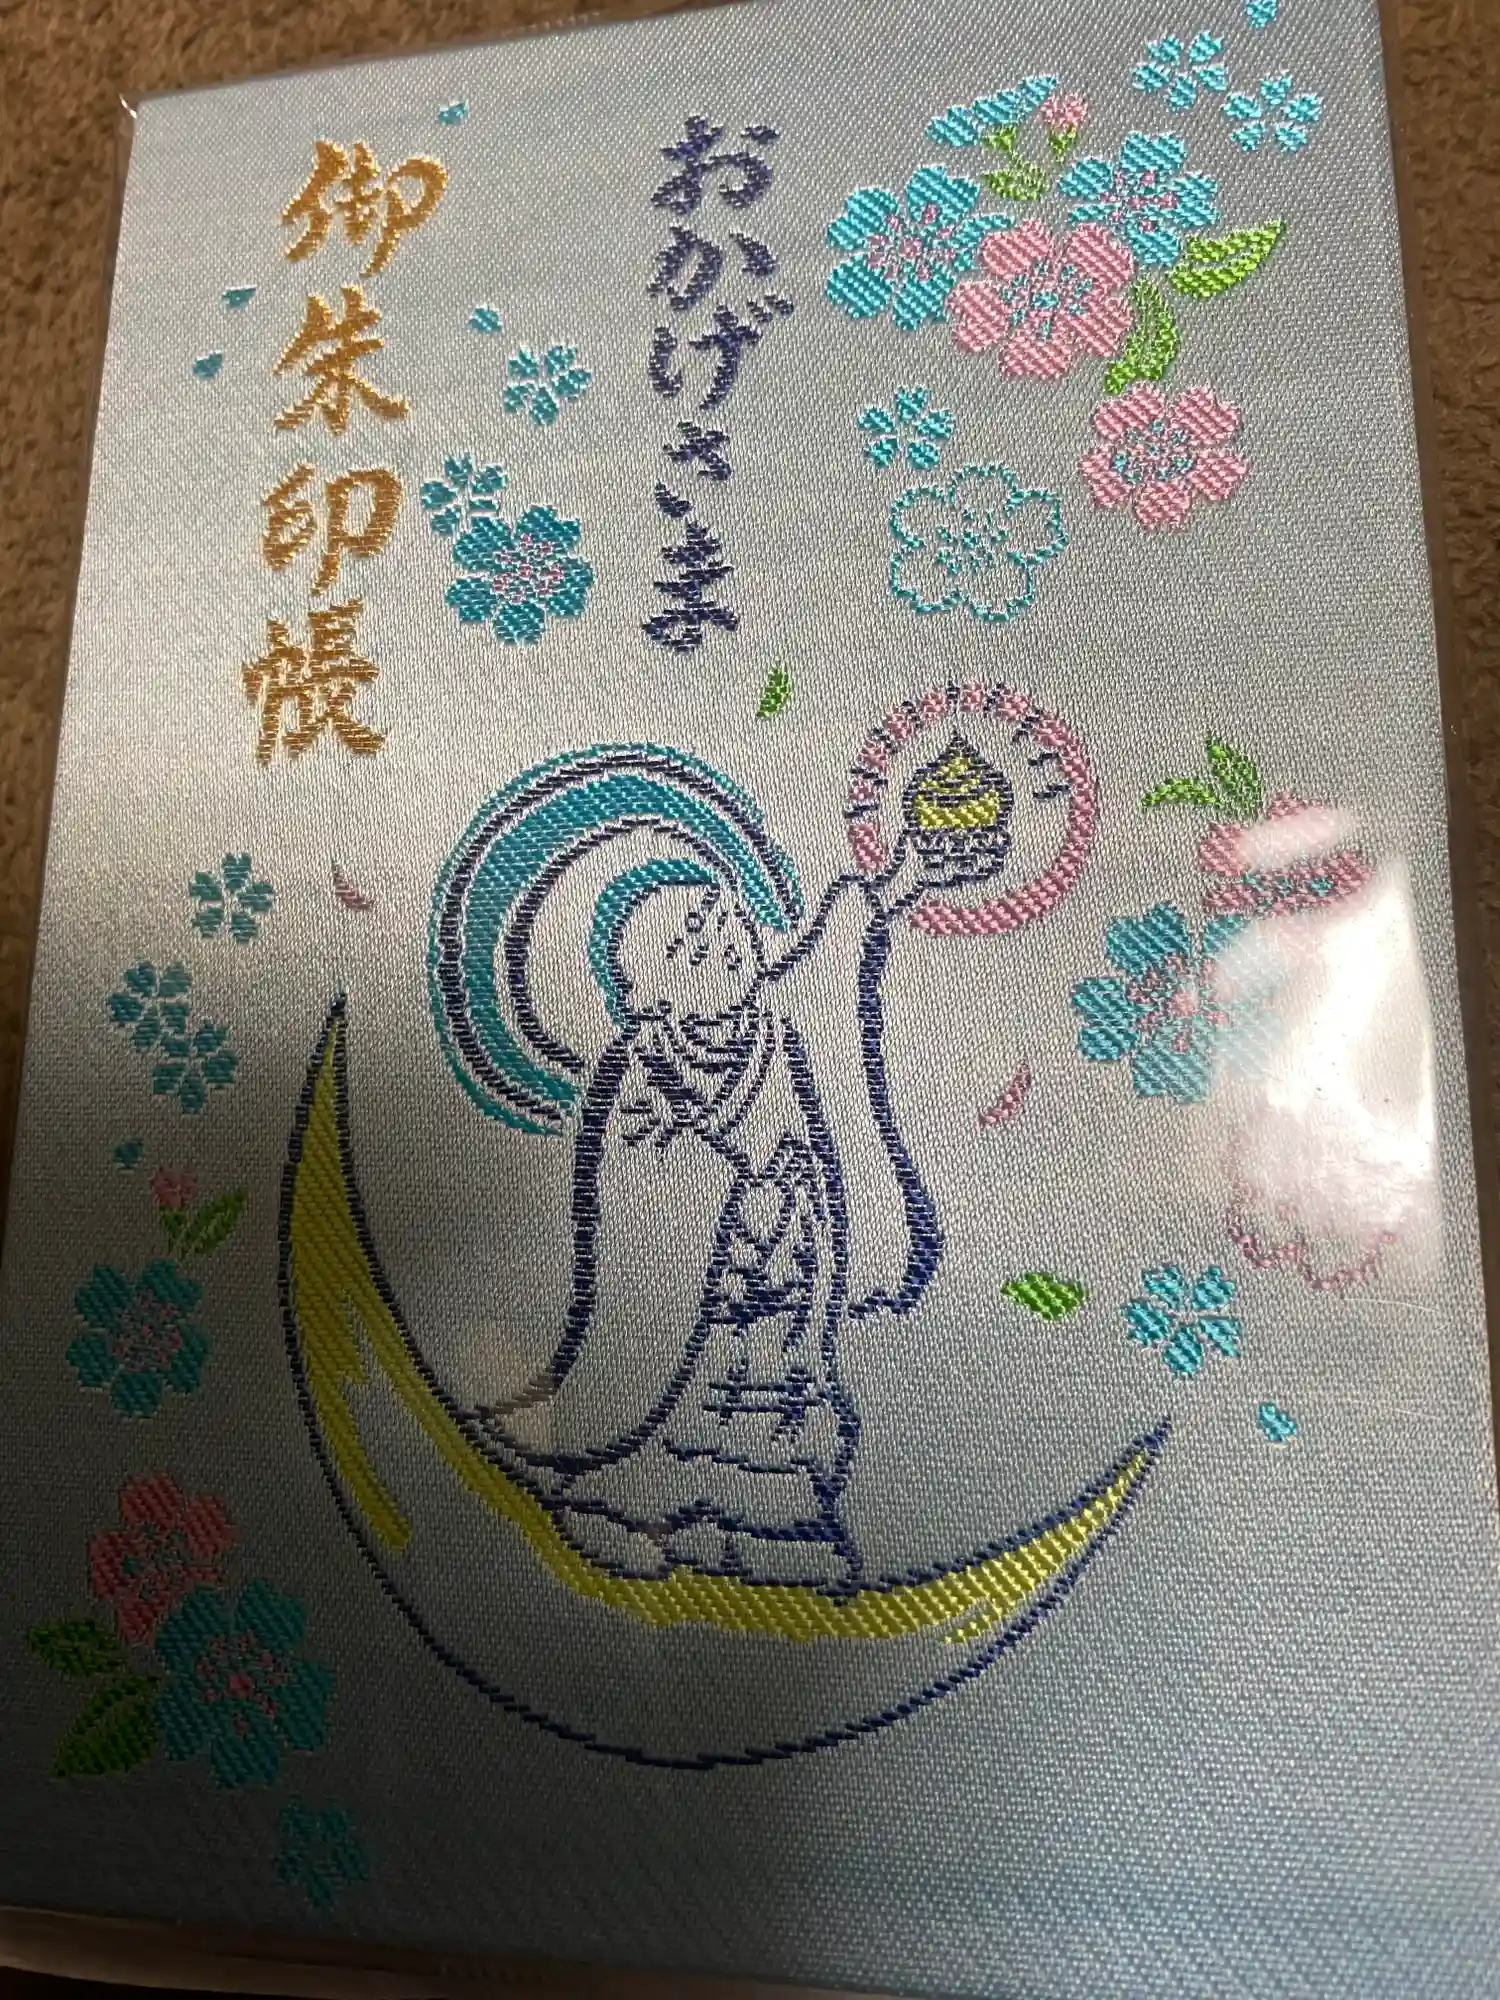 おかげさま
御朱印帳